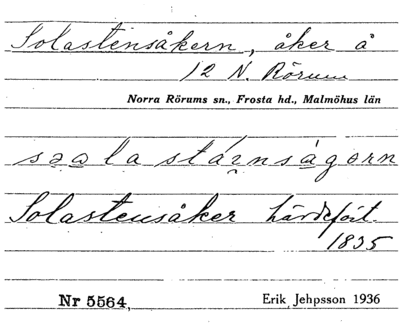 Solastensåkern, åker å
12 N. Rörum
Norra Rörums sn., Frosta hd., Malmöhus län
Solastensåker härdefört.
1835
Nr 5564,
Erik Jehpsson 1936